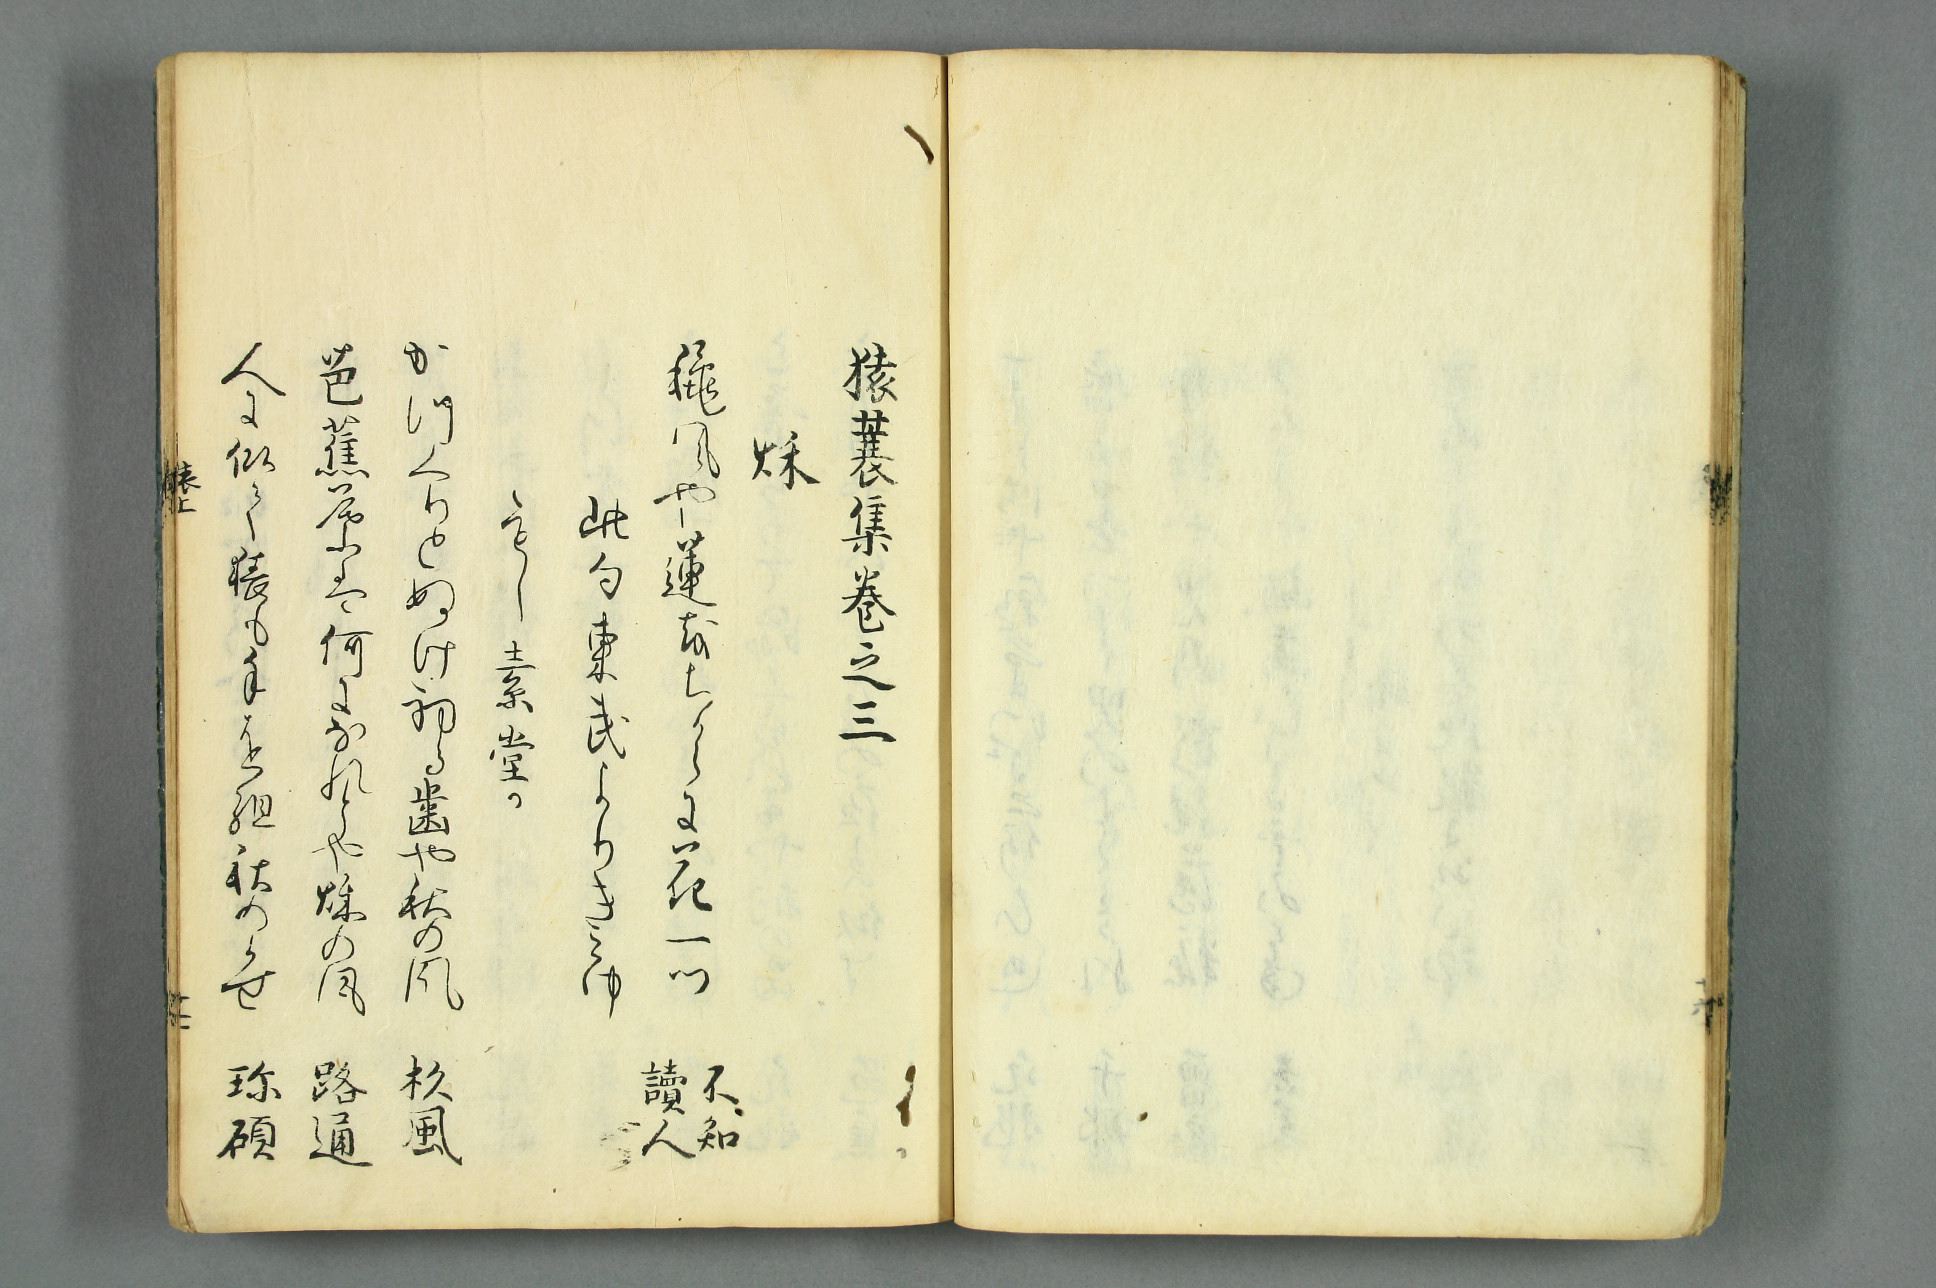 猿蓑集巻之三
秌
龝風や蓮をちからに花一つ
不知
讀人
此句東武よりきこゆ
もし素堂か
かつくりとぬけ初る歯や秋の風 杉風
芭蕉葉は何になれとや秌の風 路通
人に似て猿も手を組秋のかせ 珎碩
猿上